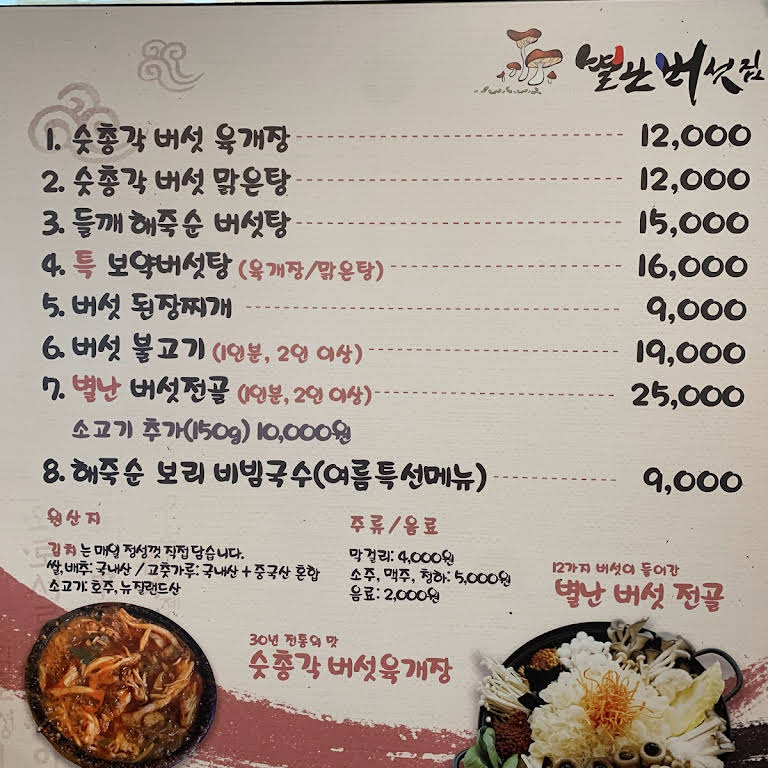 별난버섯집
1. 숫총각 버섯 육개장 12,000
2. 숫총각 버섯 맑은탕 12,000
3. 들깨 해죽순 버섯탕 15,000
4. 특 보약버섯탕 (육개장/맑은탕) 16,000
5. 버섯 된장찌개 9,000
6. 버섯 불고기 (1인분, 2인 이상) 19,000
7. 별난 버섯전골 (1인분, 2인 이상) 25,000
소고기 추가(150g) 10,000원
8. 해죽순 보리 비빔국수(여름특선메뉴) 9,000
원산지
김치는 매일 정성껏 직접 담습니다.
쌀,배추: 국내산 / 고춧가루: 국내산 + 중국산 혼합
소고기: 호주, 뉴질랜드산
주류/음료
막걸리: 4,000원
소주, 맥주, 청하: 5,000원
음료: 2,000원
12가지 버섯이 들어간
별난 버섯 전골
30년 전통의 맛
숫총각 버섯육개장